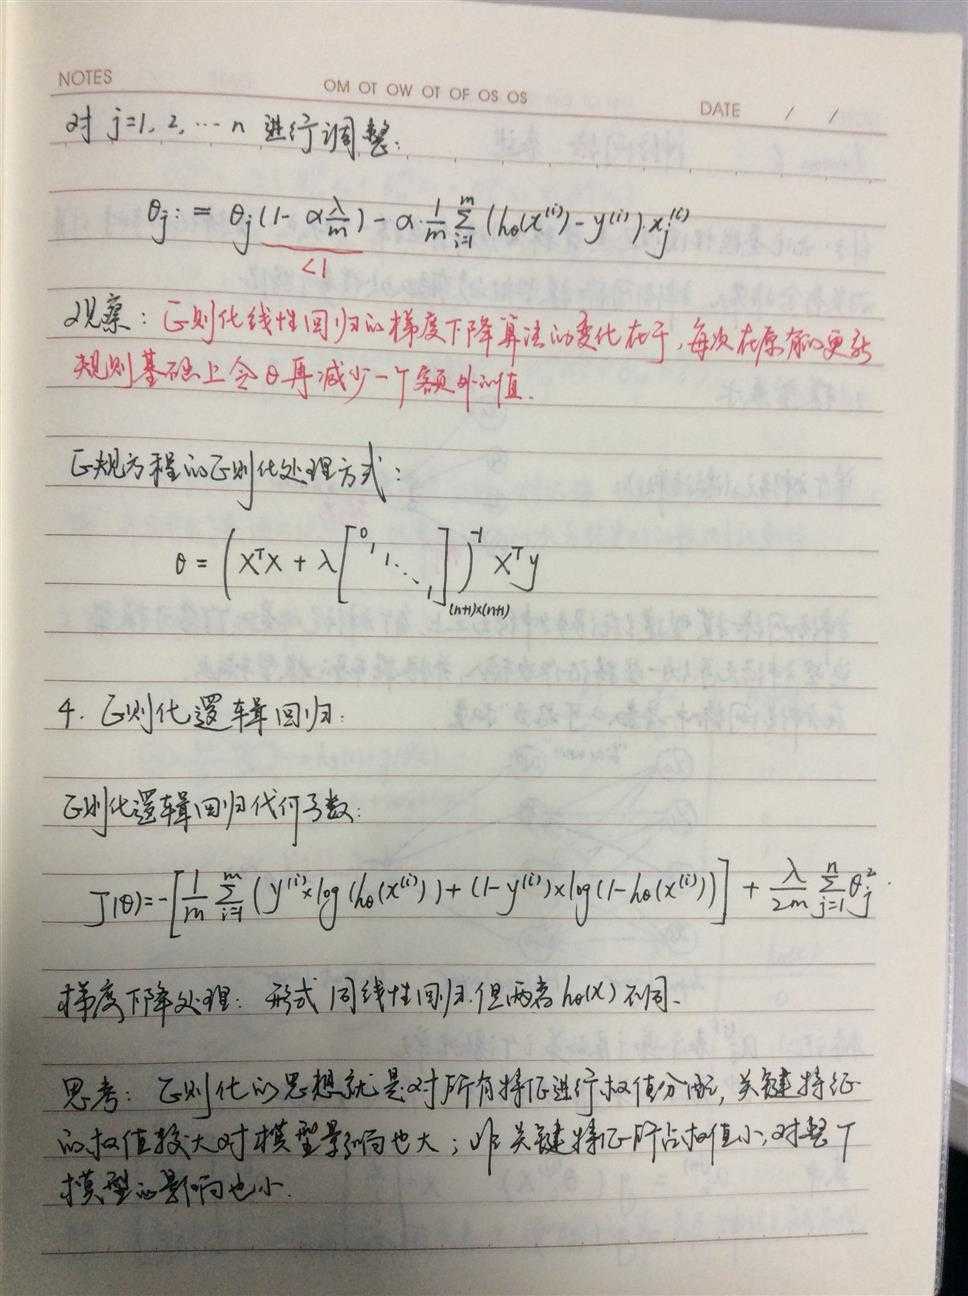 NOTES
OM OT OW OT OF OS OS
DATE / /
对 j=1, 2, ⋯ n 进行调整:
θj := θj(1 - α λ/m) - α · 1/m Σ_{i=1}^{m} (hθ(x^(i)) - y^(i)) · xj^(i)
<1
观察: 正则化线性回归的梯度下降算法的变化在于, 每次在原有的更新
规则基础上令θ再减少一个额外的值.
正规方程的正则化处理方式:
θ = (X^T X + λ [0 1 1 ⋱ 1]_{(n+1)×(n+1)})^{-1} X^T y
4. 正则化逻辑回归:
正则化逻辑回归代价函数:
J(θ) = -[1/m Σ_{i=1}^{m} (y^(i) × log(hθ(x^(i))) + (1-y^(i)) × log(1-hθ(x^(i))))] + λ/2m Σ_{j=1}^{n} θj^2.
梯度下降处理: 形式同线性回归. 但两者 hθ(x) 不同.
思考: 正则化的思想就是对所有特征进行权值分配, 关键特征
的权值较大对模型影响也大; 非关键特征所占权值小, 对整个
模型的影响也小.